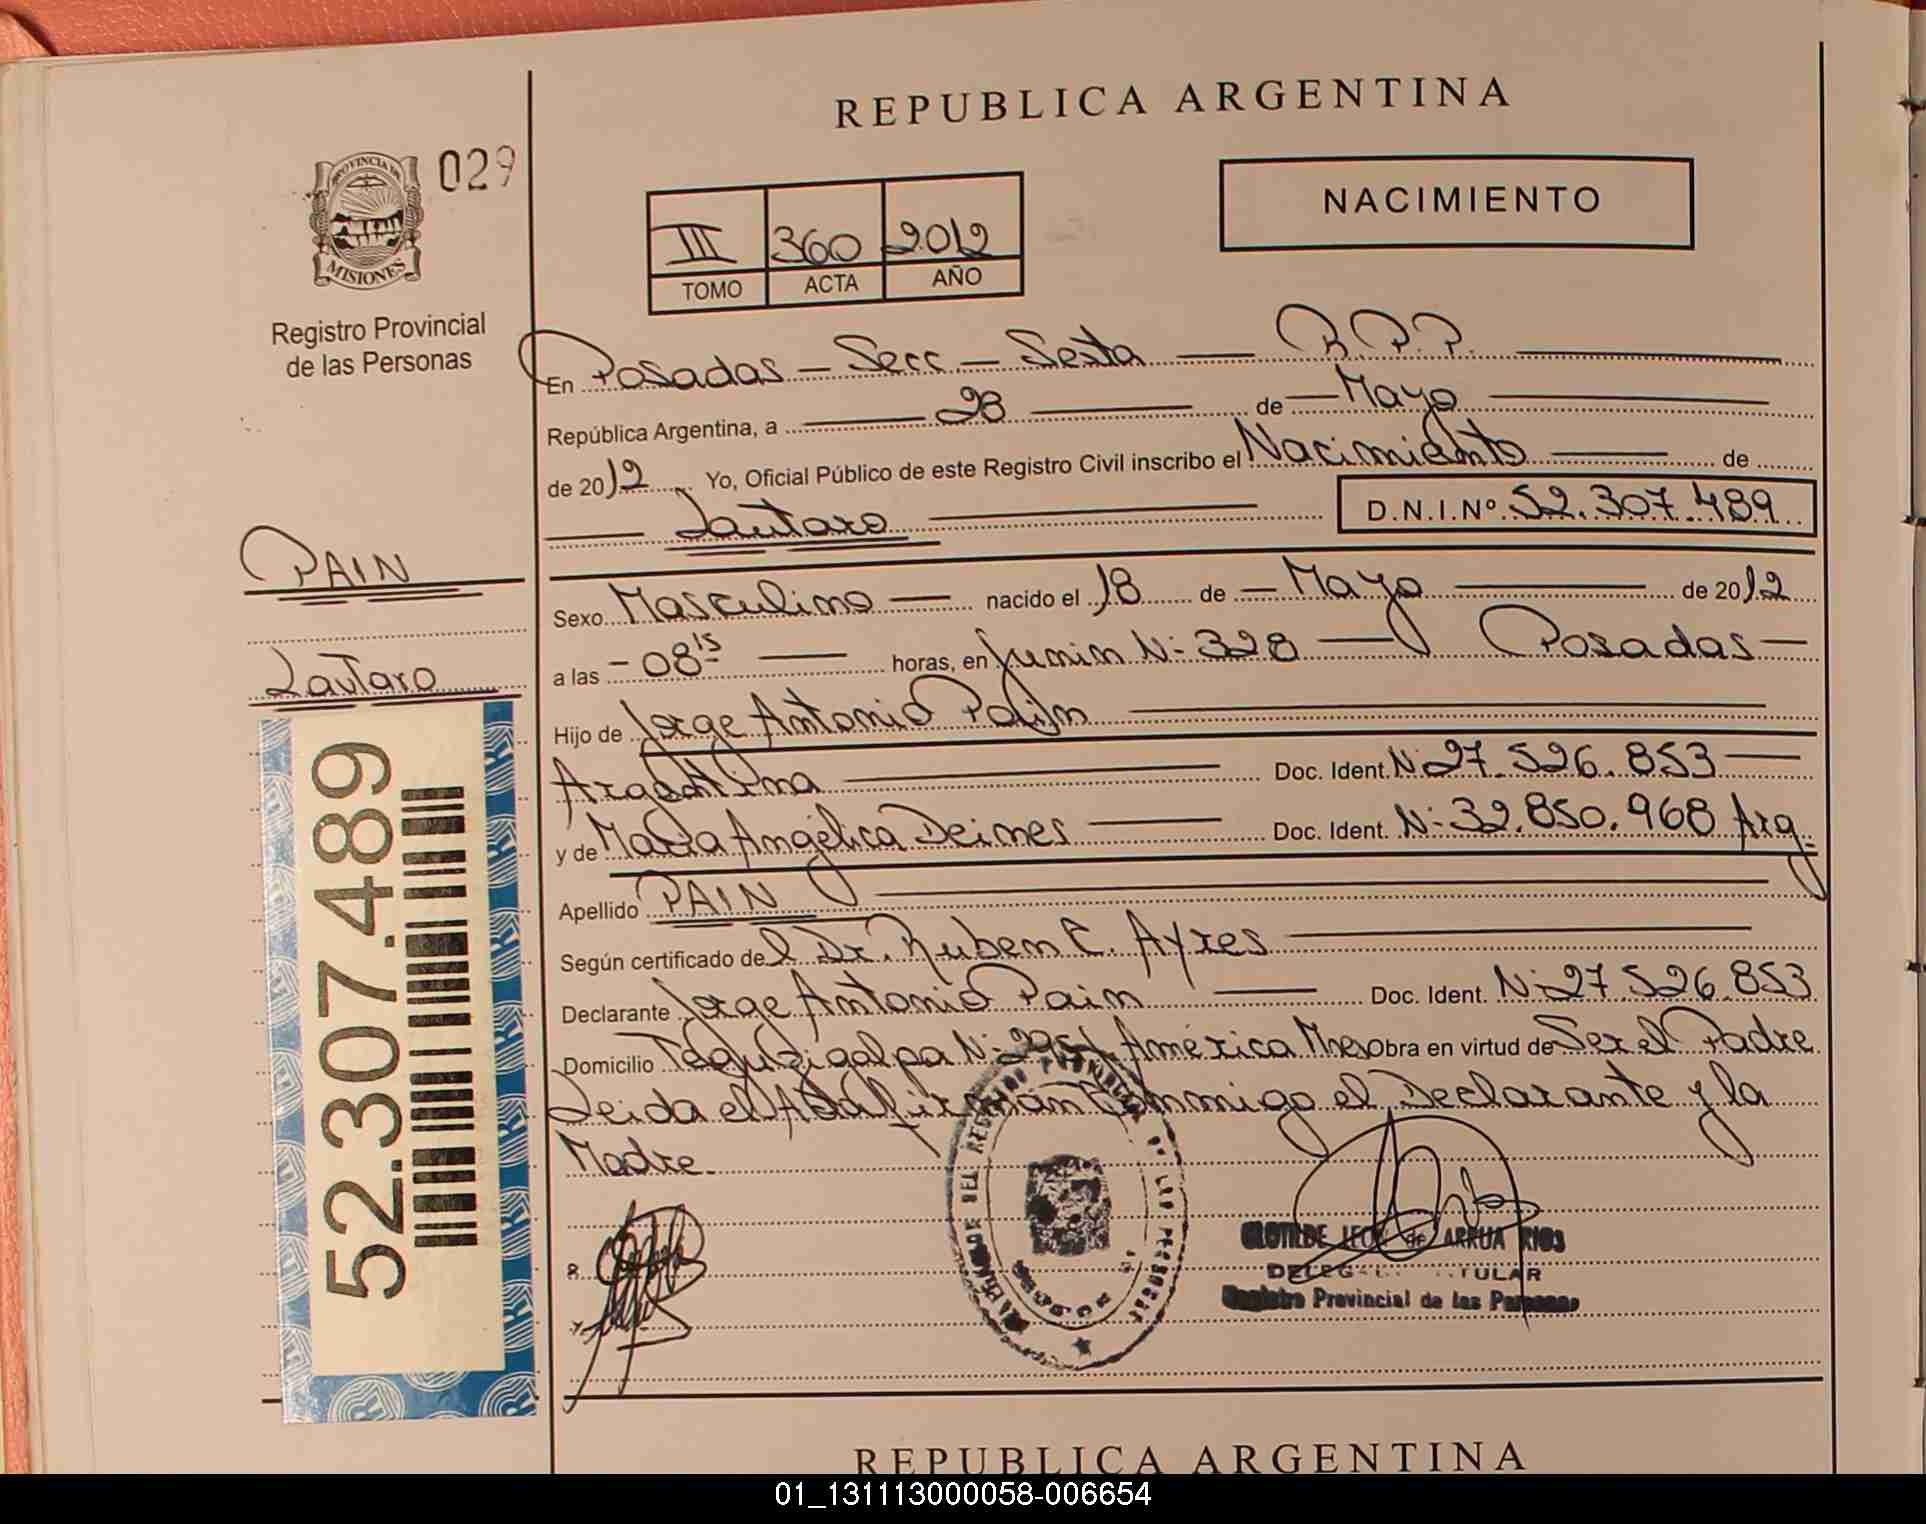 REPUBLICA ARGENTINA
PROVINCIA DE
MISIONES
029
Registro Provincial
de las Personas
III 360 2012
TOMO ACTA AÑO
NACIMIENTO
En Posadas - Secc - Sexta - R.P.P.
República Argentina, a 28 de Mayo
de 2012 Yo, Oficial Público de este Registro Civil inscribo el Nacimiento de
Lautaro D.N.I.Nº 52.307.489
PAIN
Lautaro
52.307.489
Sexo Masculino nacido el 18 de Mayo de 2012
a las - 08 15 horas, en Junin N- 328 Posadas
Hijo de Jorge Antonio Pain
Argentina Doc. Ident. N- 27.526.853
y de María Angélica Deimes Doc. Ident. N- 32.850.968 Arg.
Apellido PAIN
Según certificado del Dr. Ruben C. Ayres
Declarante Jorge Antonio Pain Doc. Ident. N- 27.526.853
Domicilio Tegucigalpa América Mnes Obra en virtud de Ser el Padre
Leida el Acta firman Conmigo el Declarante y la
Madre.
DEL REGISTRO PROVINCIAL DE LAS PERSONAS
CLOTILDE LEON de ARRUA RIOS
DELEGADA TITULAR
Registro Provincial de las Personas
REPUBLICA ARGENTINA
01_131113000058-006654